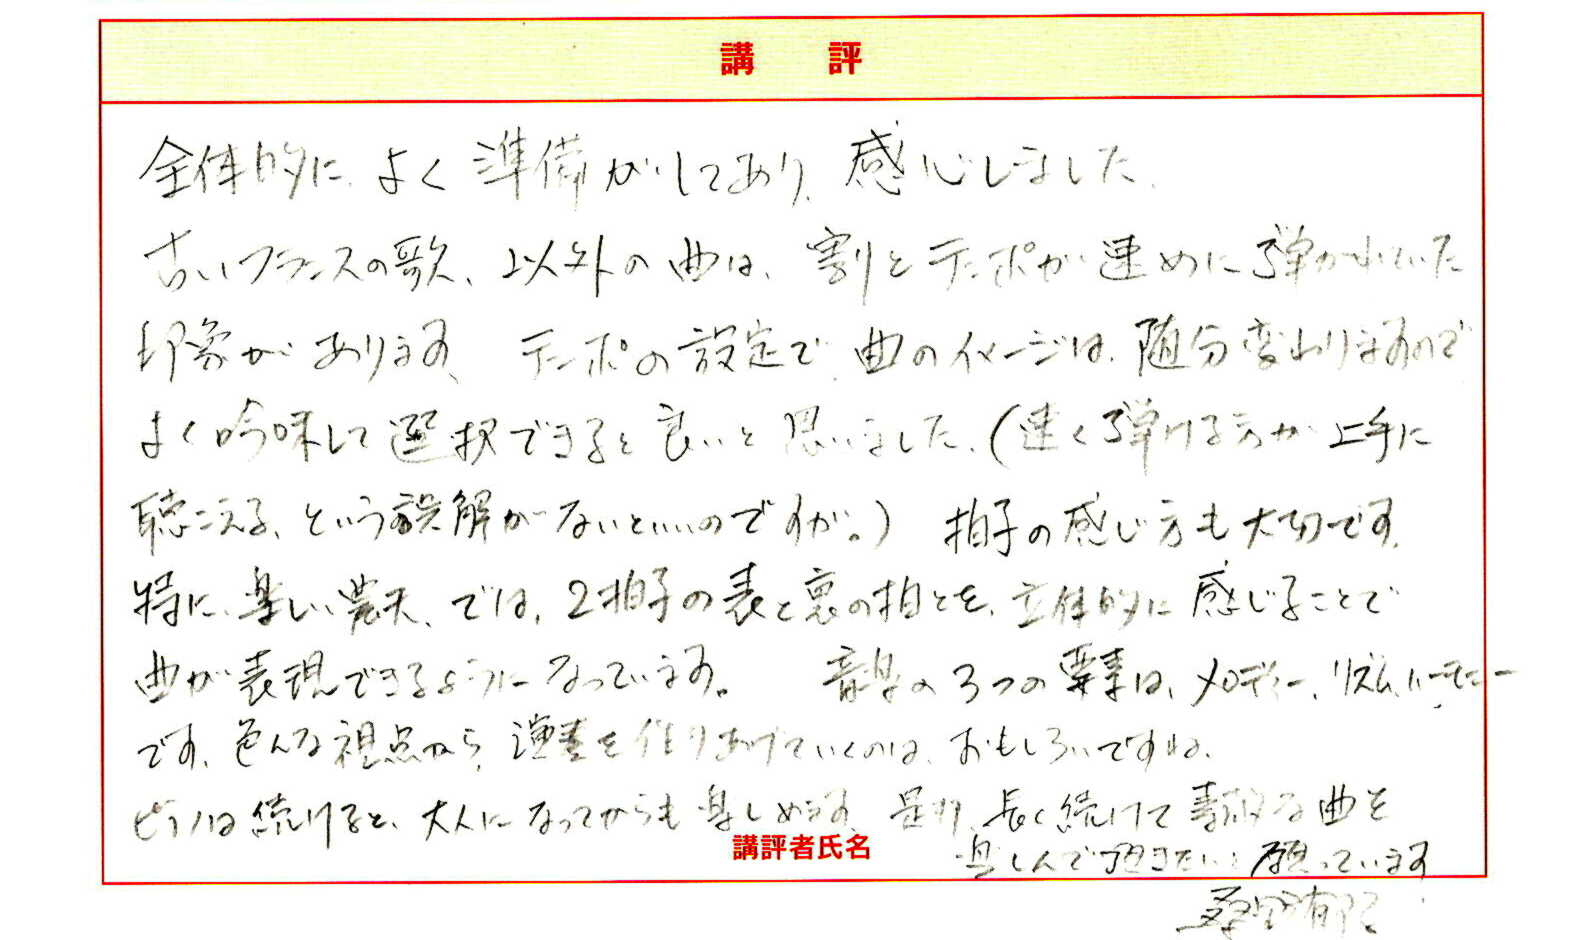 講評
全体的に、よく準備がしてあり、感心しました。
古いフランスの歌、以外の曲は、割とテンポが速めに弾かれていた
印象があります。テンポの設定で、曲のイメージは、随分変わりますので
よく吟味して選択できると良いと思いました。(速く弾ける方が上手に
聴こえる、という誤解がないといいのですが。) 拍子の感じ方も大切です。
特に、楽しい農夫、では、2拍子の表と裏の拍とを、立体的に感じることで
曲が表現できるようになっています。 音楽の3つの要素は、メロディー、リズム、ハーモニー
です。色んな視点から、演奏を作りあげていくのは、おもしろいですね。
ピアノは続けると、大人になってからも楽しめます。是非、長く続けて素敵な曲を
楽しんで頂きたいと願っています。
講評者氏名